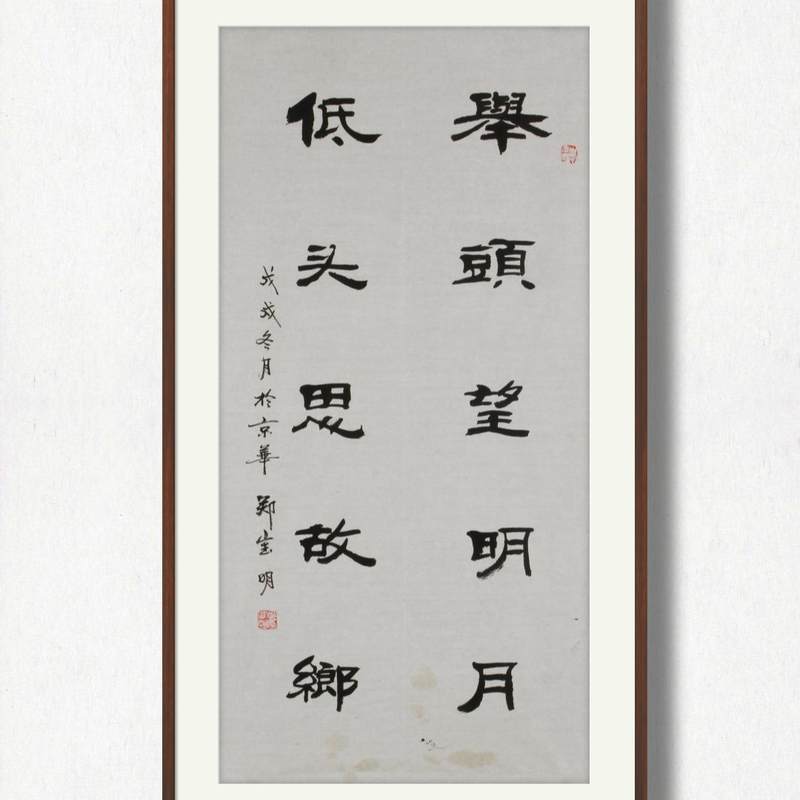 舉頭望明月
低头思故鄉
戊戌冬月於京華 郑宝明